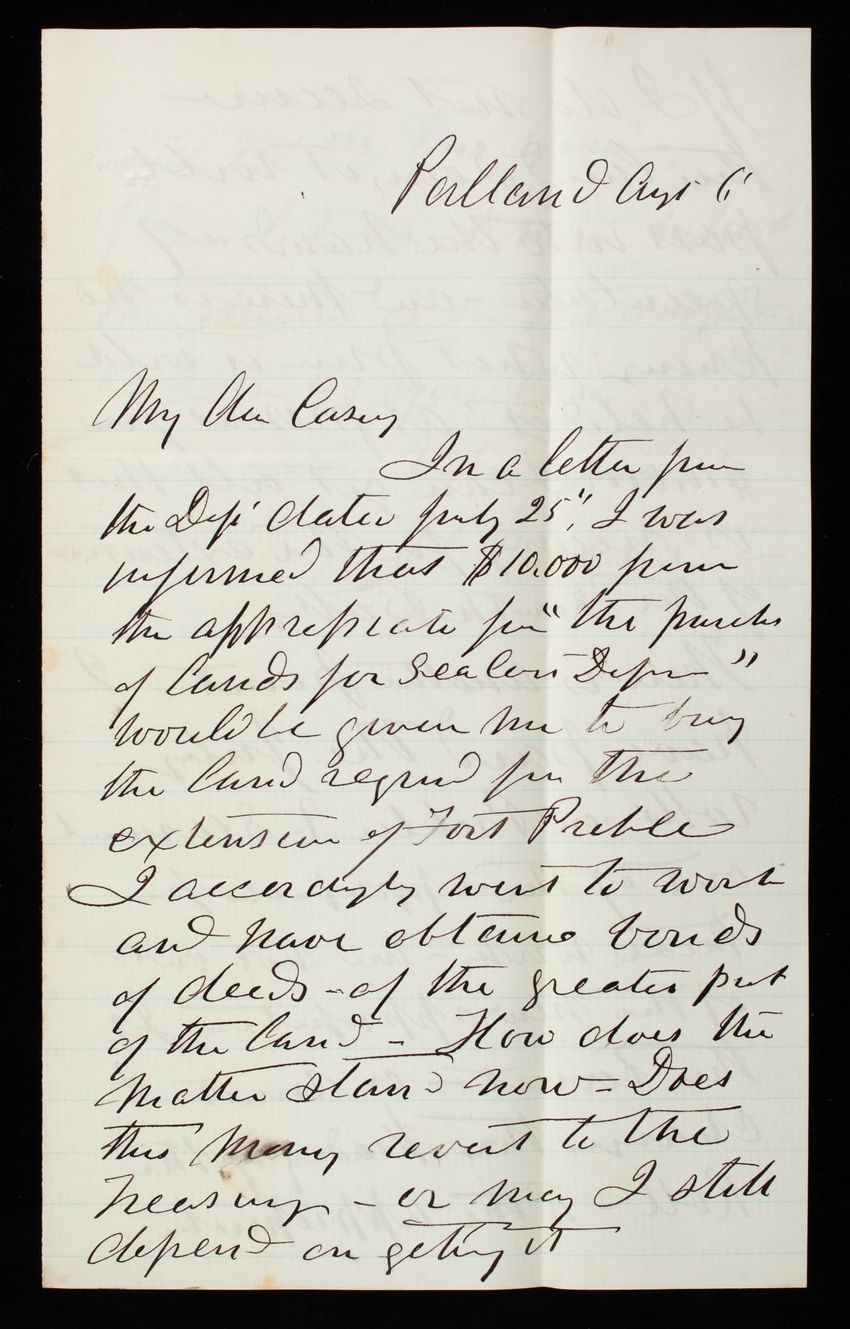 Portland Augt 6'
My dear Casey
In a letter from
the Dept dated July 25", I was
informed that $10.000 from
the appropriate for "the purchs
of Lands for Sea Coast Defen"
would be given me to buy
the land reqrd for the
extension of Fort Preble
I accordingly went to work
and have obtained bonds
of deeds - of the greater part
of the land - How does the
matter stand now = Does
this money revert to the
Treasury - or may I still
depend on getting it